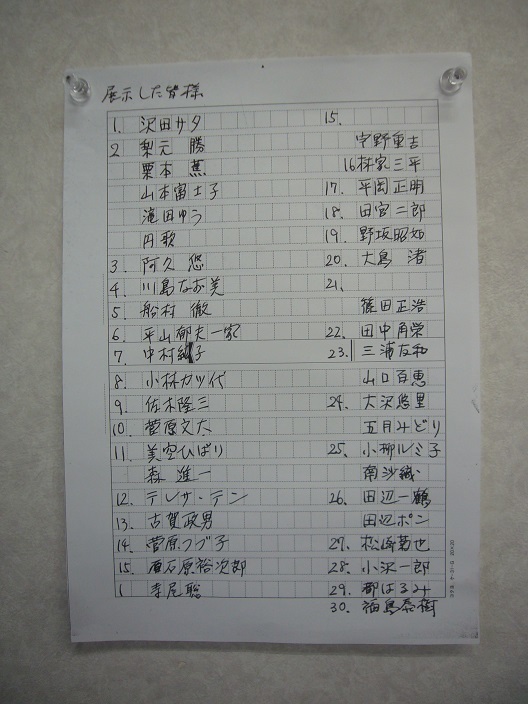 展示した皆様
1. 沢田サタ
2 梨元 勝
栗本 薫
山本富士子
滝田ゆう
円歌
3. 阿久 悠
4. 川島なお美
5 船村 徹
6 平山郁夫一家
7 中村紘子
8 小林カツ代
9. 佐木隆三
10. 菅原文太
11. 美空ひばり
森 進一
12. テレサ・テン
13. 古賀政男
14. 菅原つづ子
15. 石原裕次郎
寺尾聡
15.
宇野重吉
16 林家三平
17. 平岡正明
18. 田宮二郎
19. 野坂昭如
20. 大島 渚
21.
篠田正浩
22. 田中角栄
23. 三浦友和
山口百恵
24. 大沢悠里
五月みどり
25. 小柳ルミ子
南沙織
26. 田辺一鶴
田辺ポン
27. 松崎菊也
28. 小沢一郎
29. 都はるみ
30. 福島泰樹